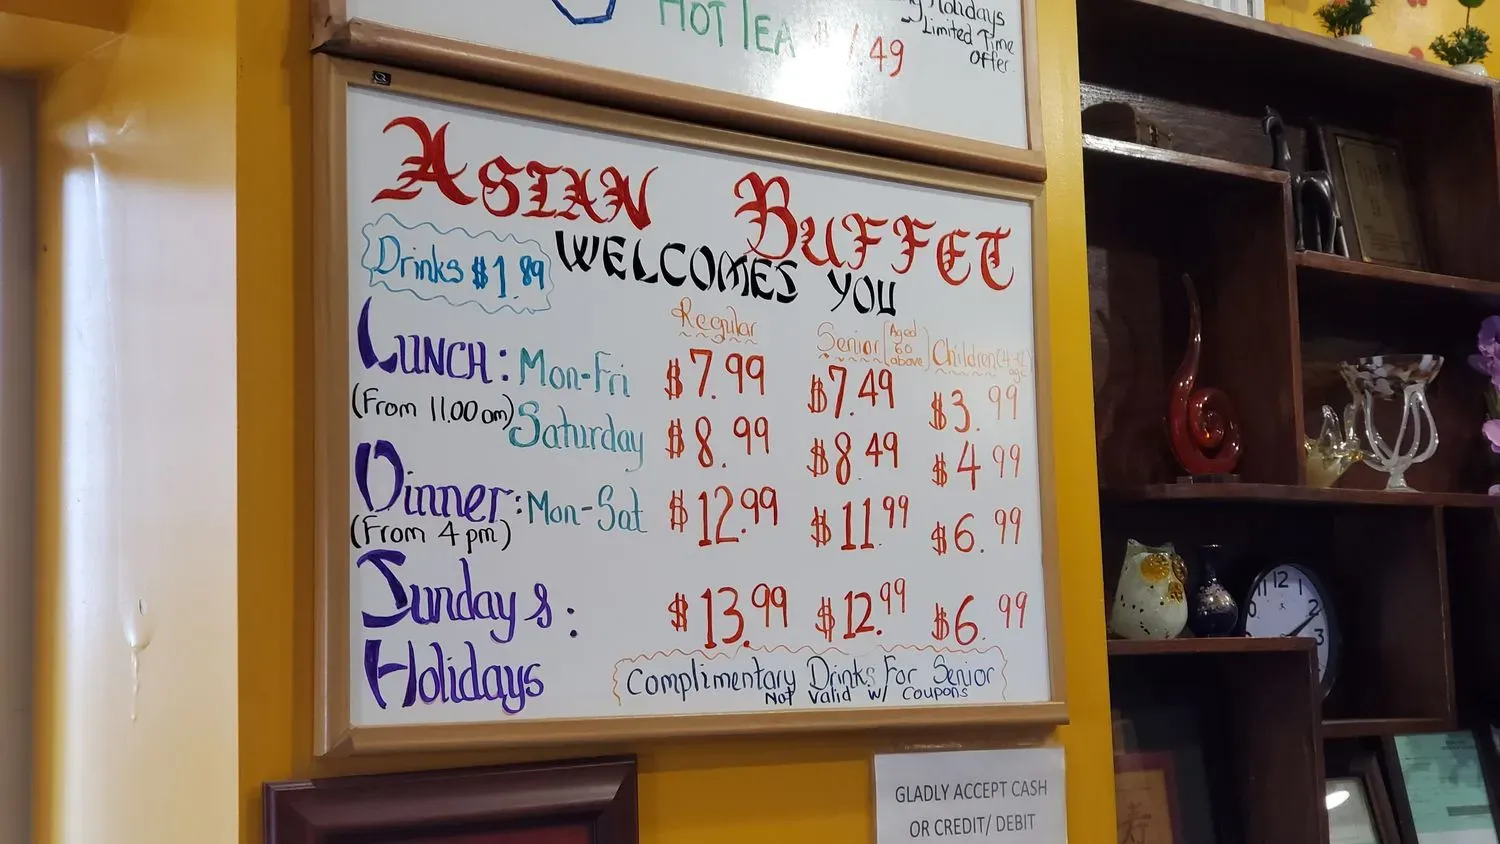 HOT TEA $1.49
Holidays
Limited Time
Offer.
ASIAN BUFFET
WELCOMES YOU
Drinks $1.89
Regular Senior (Aged 60 above) Children
LUNCH: Mon-Fri $7.99 $7.49 $3.99
(From 11.00am) Saturday $8.99 $8.49 $4.99
Dinner: Mon-Sat $12.99 $11.99 $6.99
(From 4pm)
Sundays: $13.99 $12.99 $6.99
Holidays
Complimentary Drinks For Senior
Not Valid w/ Coupons
GLADLY ACCEPT CASH
OR CREDIT/ DEBIT
11 12 1
2
3